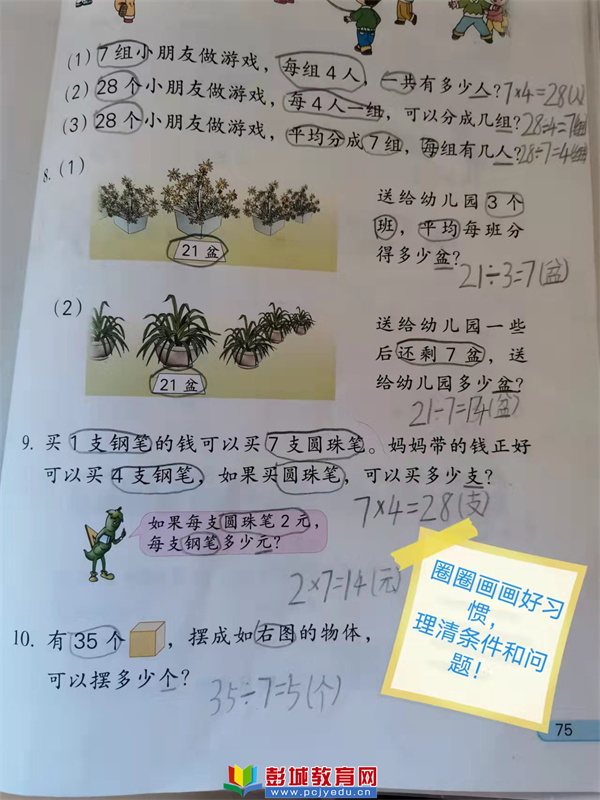 (1) 7组小朋友做游戏，每组4人，一共有多少人？7×4=28(人)
(2) 28个小朋友做游戏，每4人一组，可以分成几组？28÷4=7(组)
(3) 28个小朋友做游戏，平均分成7组，每组有几人？28÷7=4
8. (1)
送给幼儿园3个
班，平均每班分
得多少盆？
21盆
21÷3=7(盆)
(2)
送给幼儿园一些
后还剩7盆，送
给幼儿园多少盆？
21盆
21-7=14(盆)
9. 买1支钢笔的钱可以买7支圆珠笔。妈妈带的钱正好
可以买4支钢笔，如果买圆珠笔，可以买多少支？
7×4=28(支)
如果每支圆珠笔2元，
每支钢笔多少元？
2×7=14(元)
10. 有35个，摆成如右图的物体，
可以摆多少个？
35÷7=5(个)
圈圈画画好习
惯，
理清条件和问
题！
75
彭城教育网
www.pcjyedu.cn